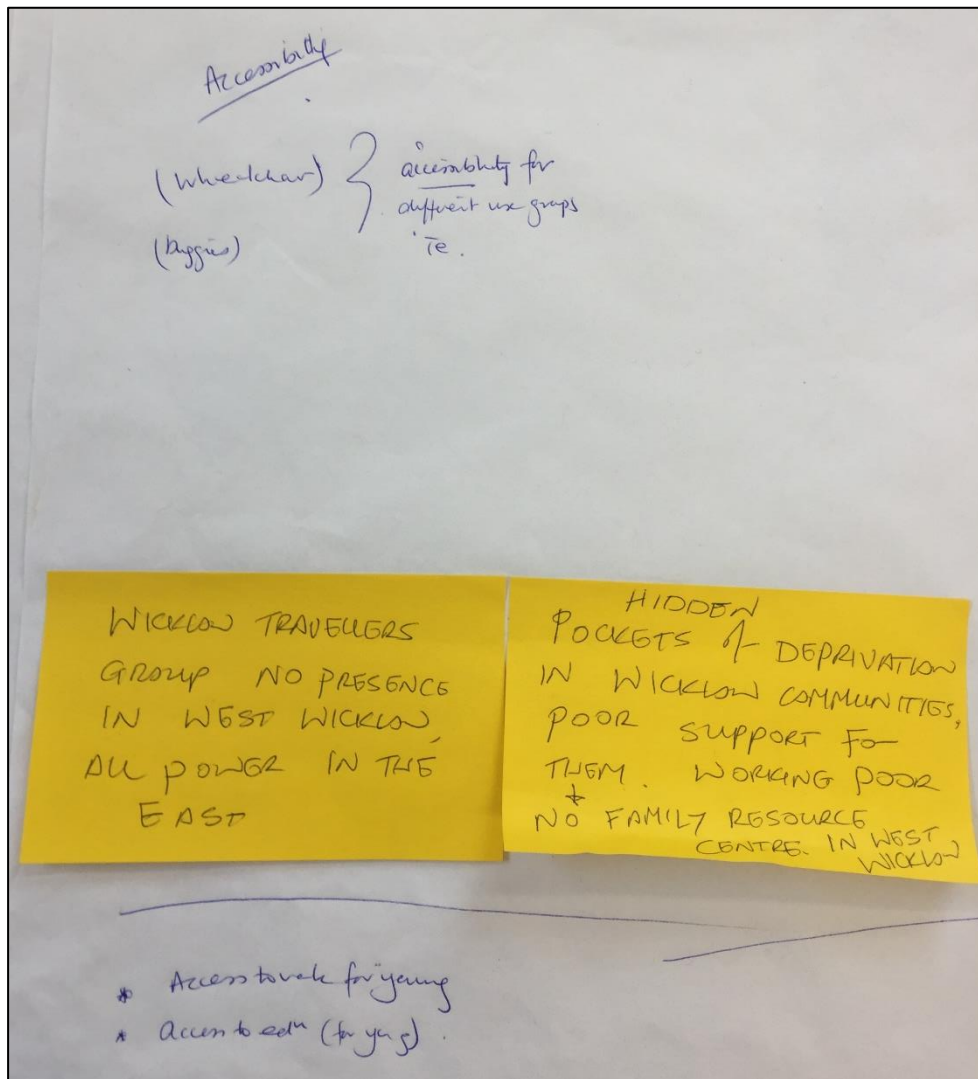 Accessibility
(Wheelchair)
(buggies)
accessibility for
different use groups
ie.
WICKLOW TRAVELLERS
GROUP NO PRESENCE
IN WEST WICKLOW,
ALL POWER IN THE
EAST
HIDDEN
POCKETS of DEPRIVATION
IN WICKLOW COMMUNITIES,
POOR SUPPORT FOR
THEM. WORKING POOR
+
NO FAMILY RESOURCE
CENTRE. IN WEST
WICKLOW
* Access to work for young
* Access to edn (for yng).